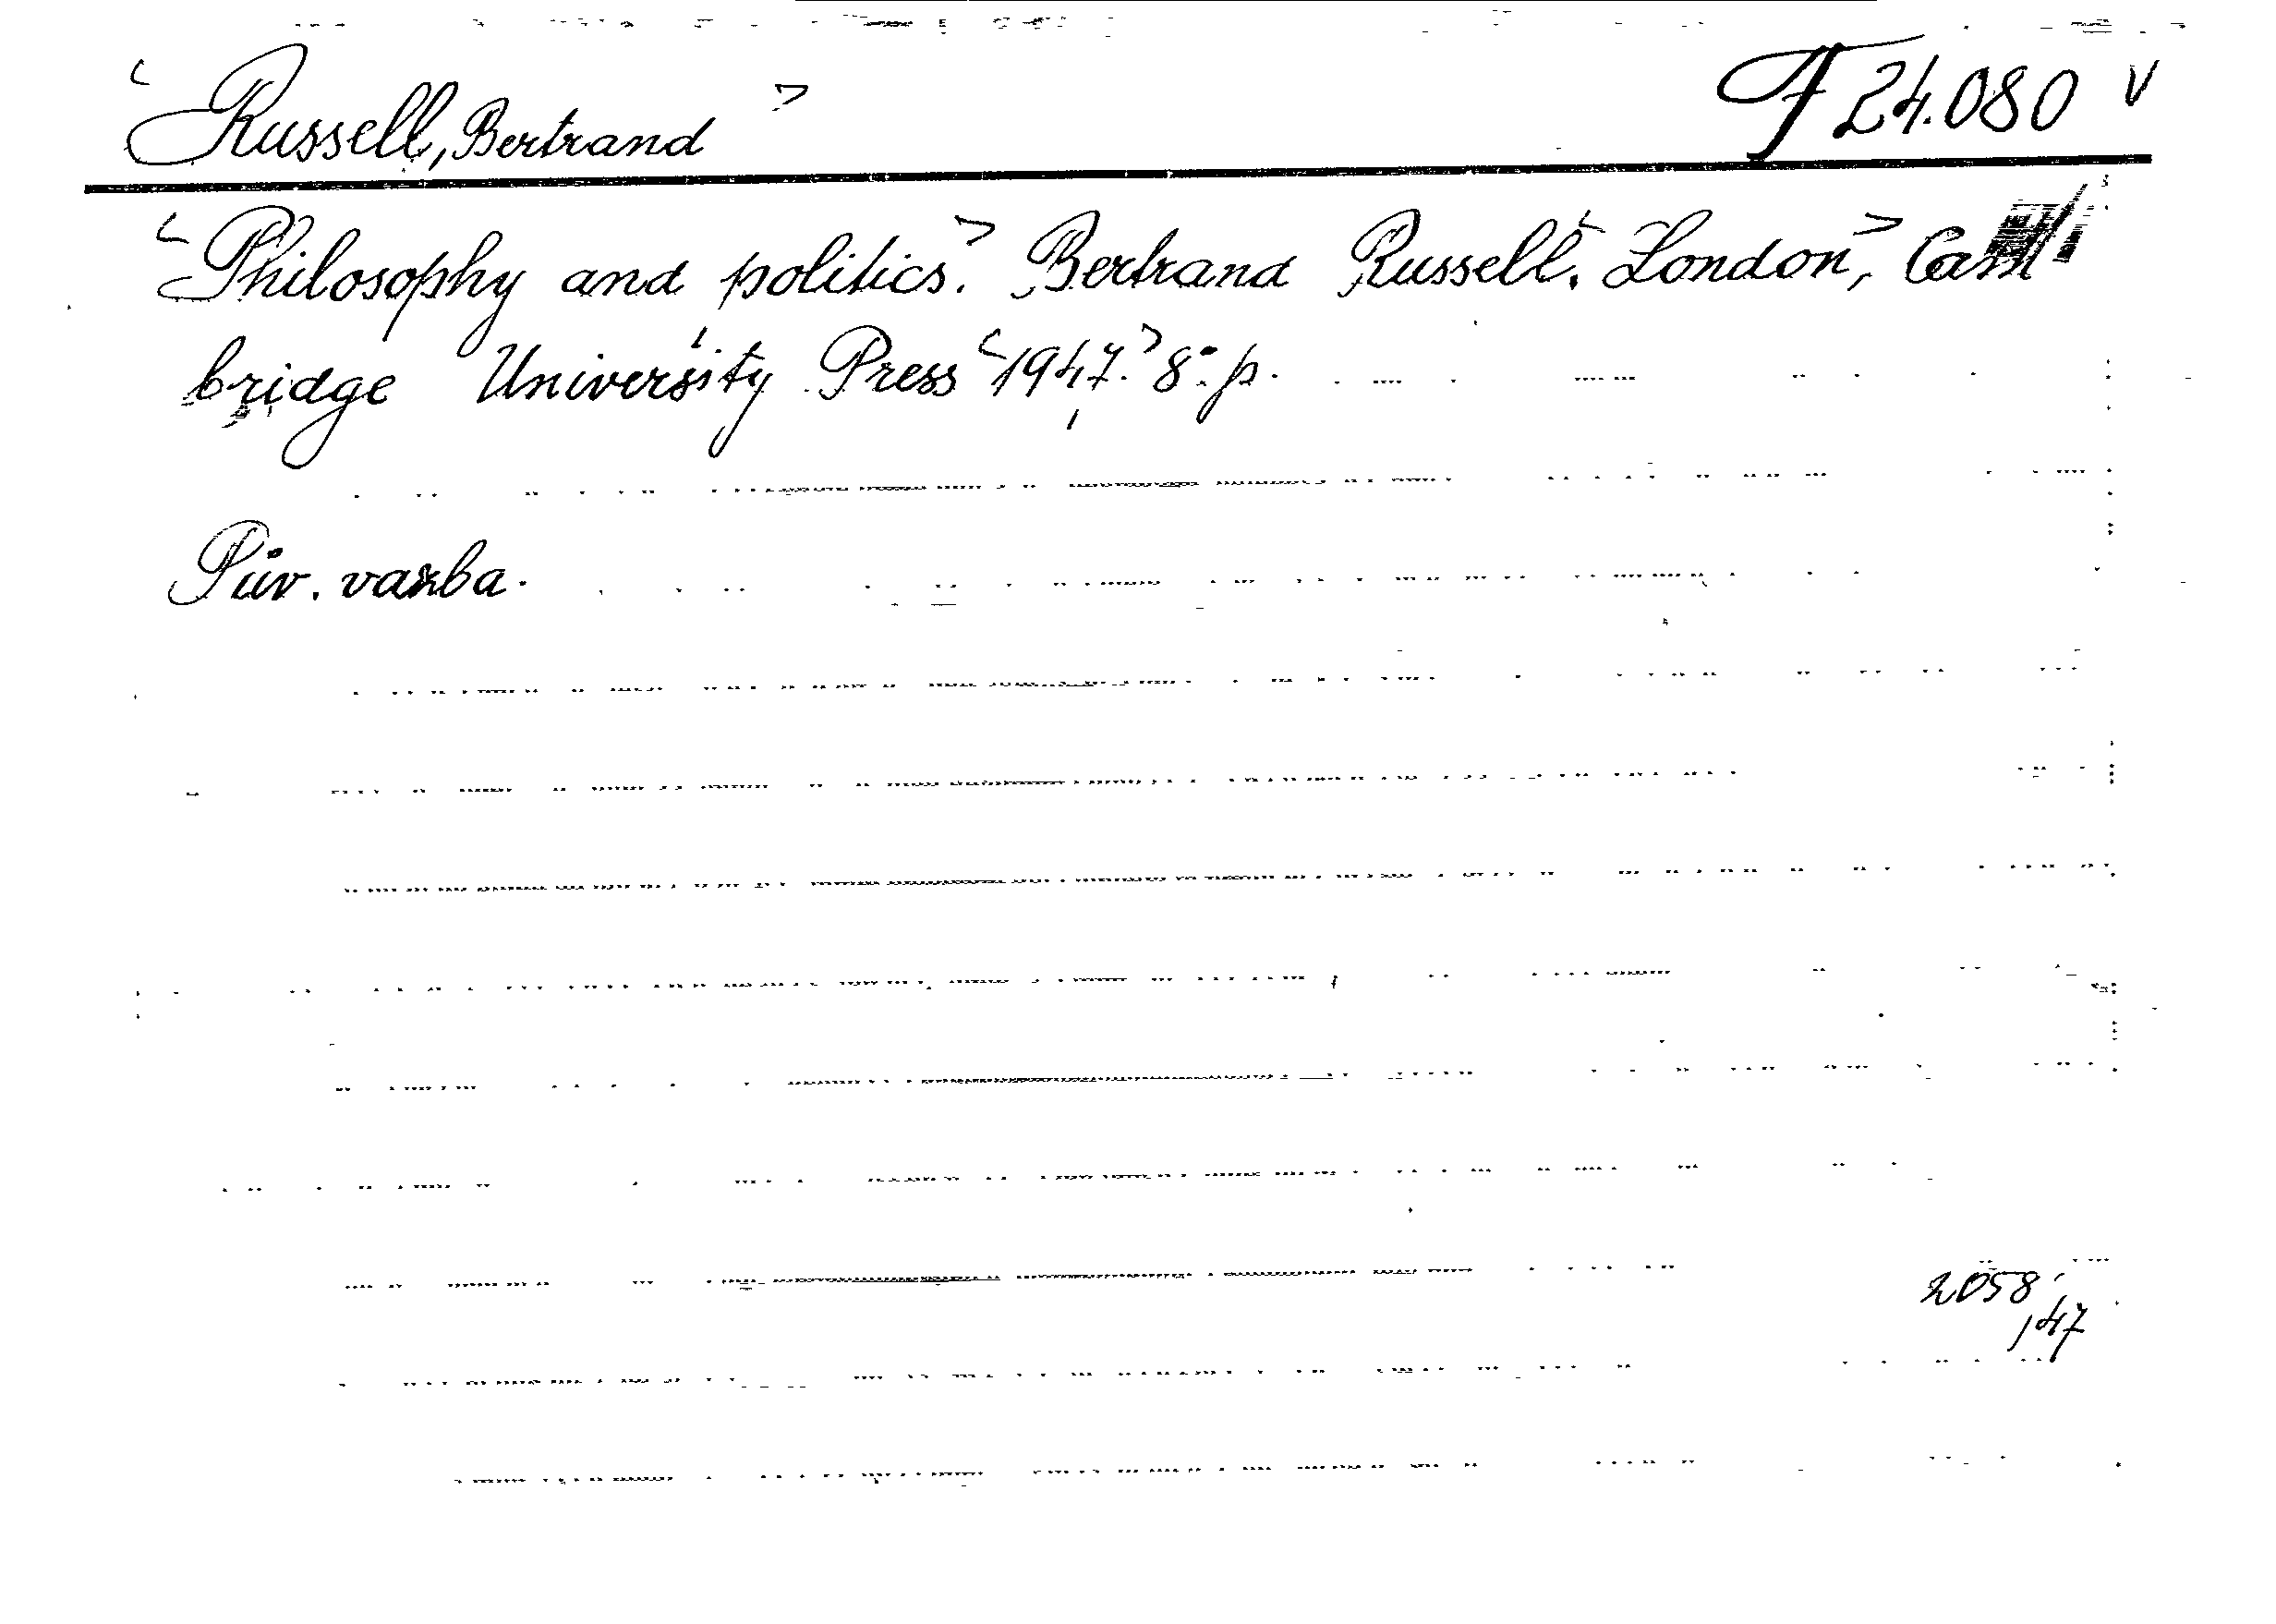 Russell, Bertrand F 24.080 V
Philosophy and politics. Bertrand Russell. London, Cam
bridge University Press 1947. 8°. p.
Pův. vazba.
2058
/47